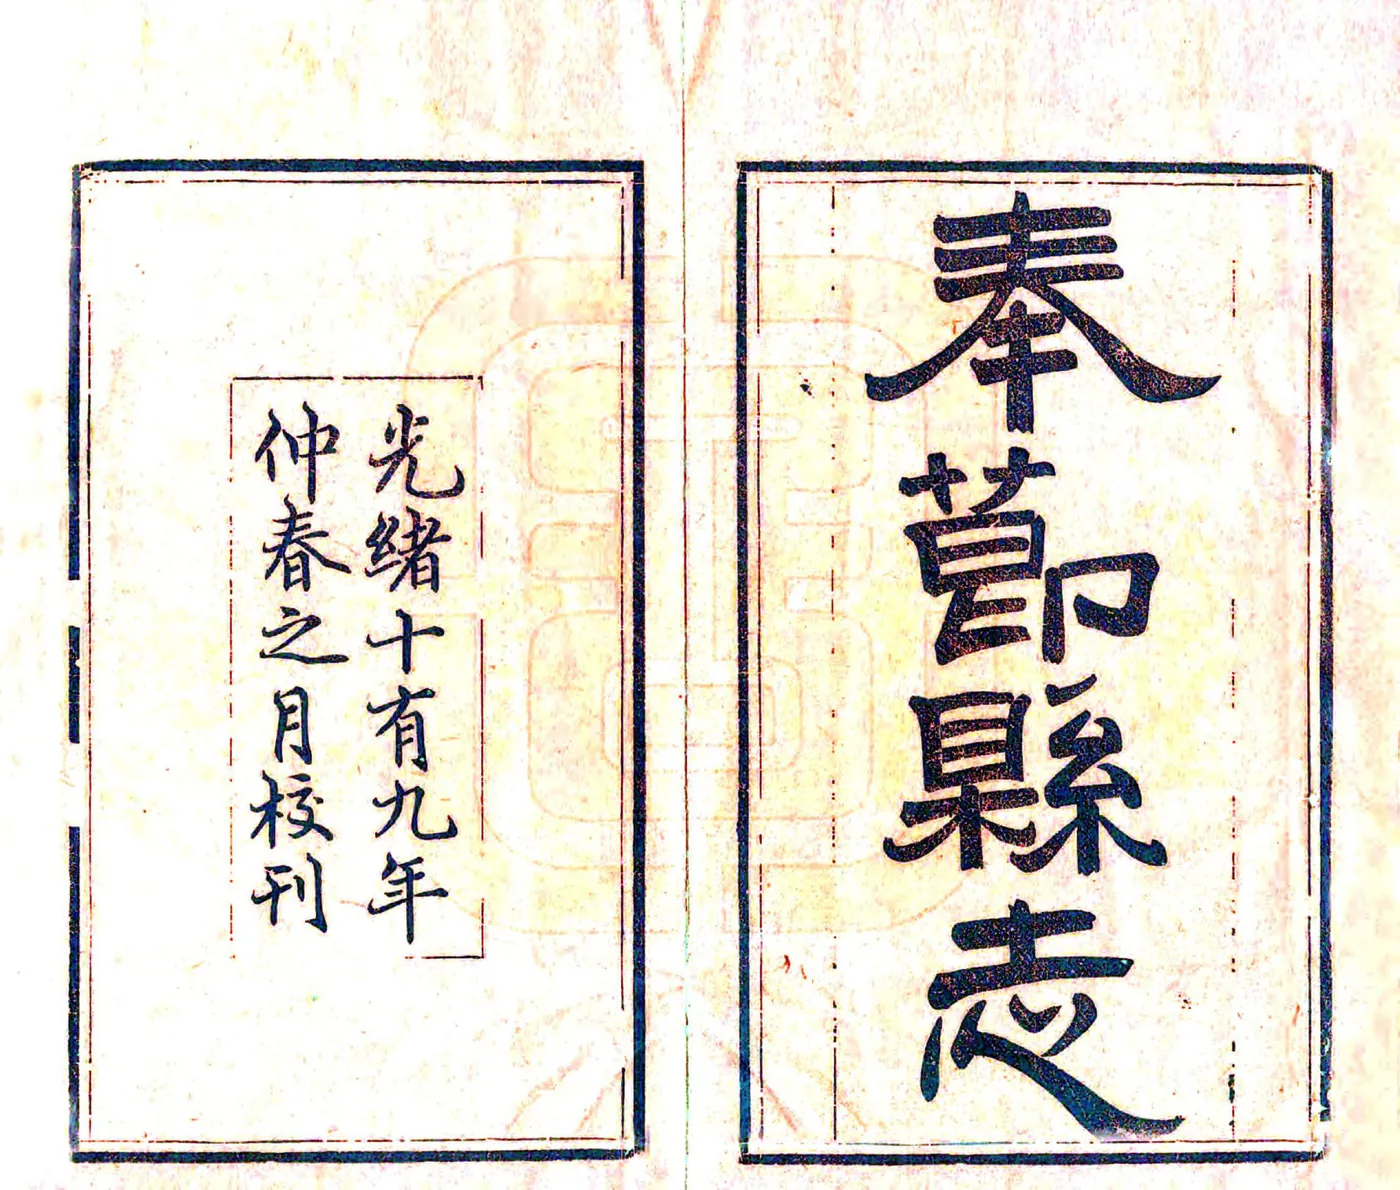 奉莭縣志
光緒十有九年
仲春之月校刊